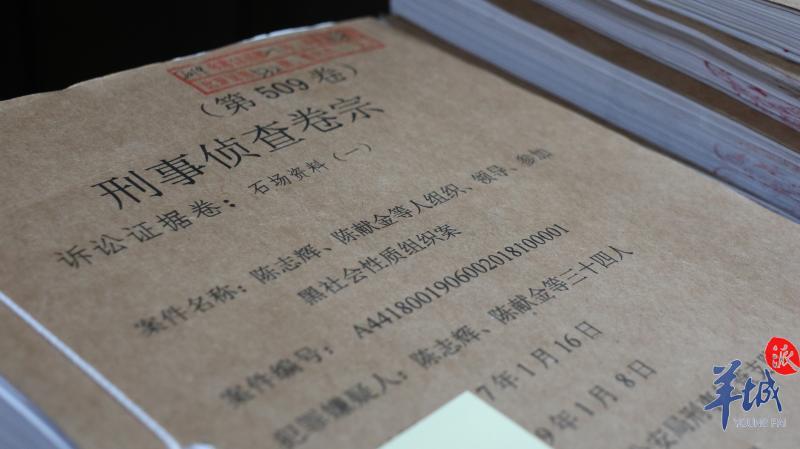 （第 509 卷）
刑事侦查卷宗
诉讼证据卷：石场资料（一）
案件名称：陈志辉、陈献金等人组织、领导、参加
黑社会性质组织案
案件编号：A4418001906002018100001
犯罪嫌疑人：陈志辉、陈献金等三十四人
7年1月16日
9年1月8日
安局刑
羊城
派
YOUNG PAI